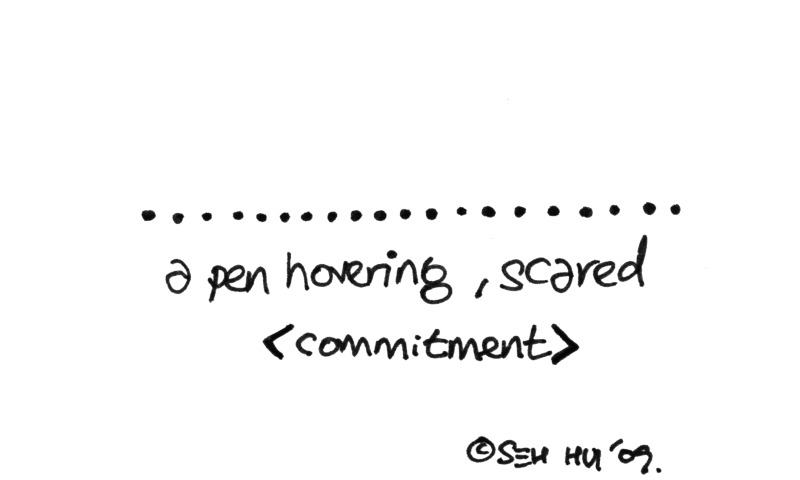 a pen hovering, scared
<commitment>
©SEH HUI '09.